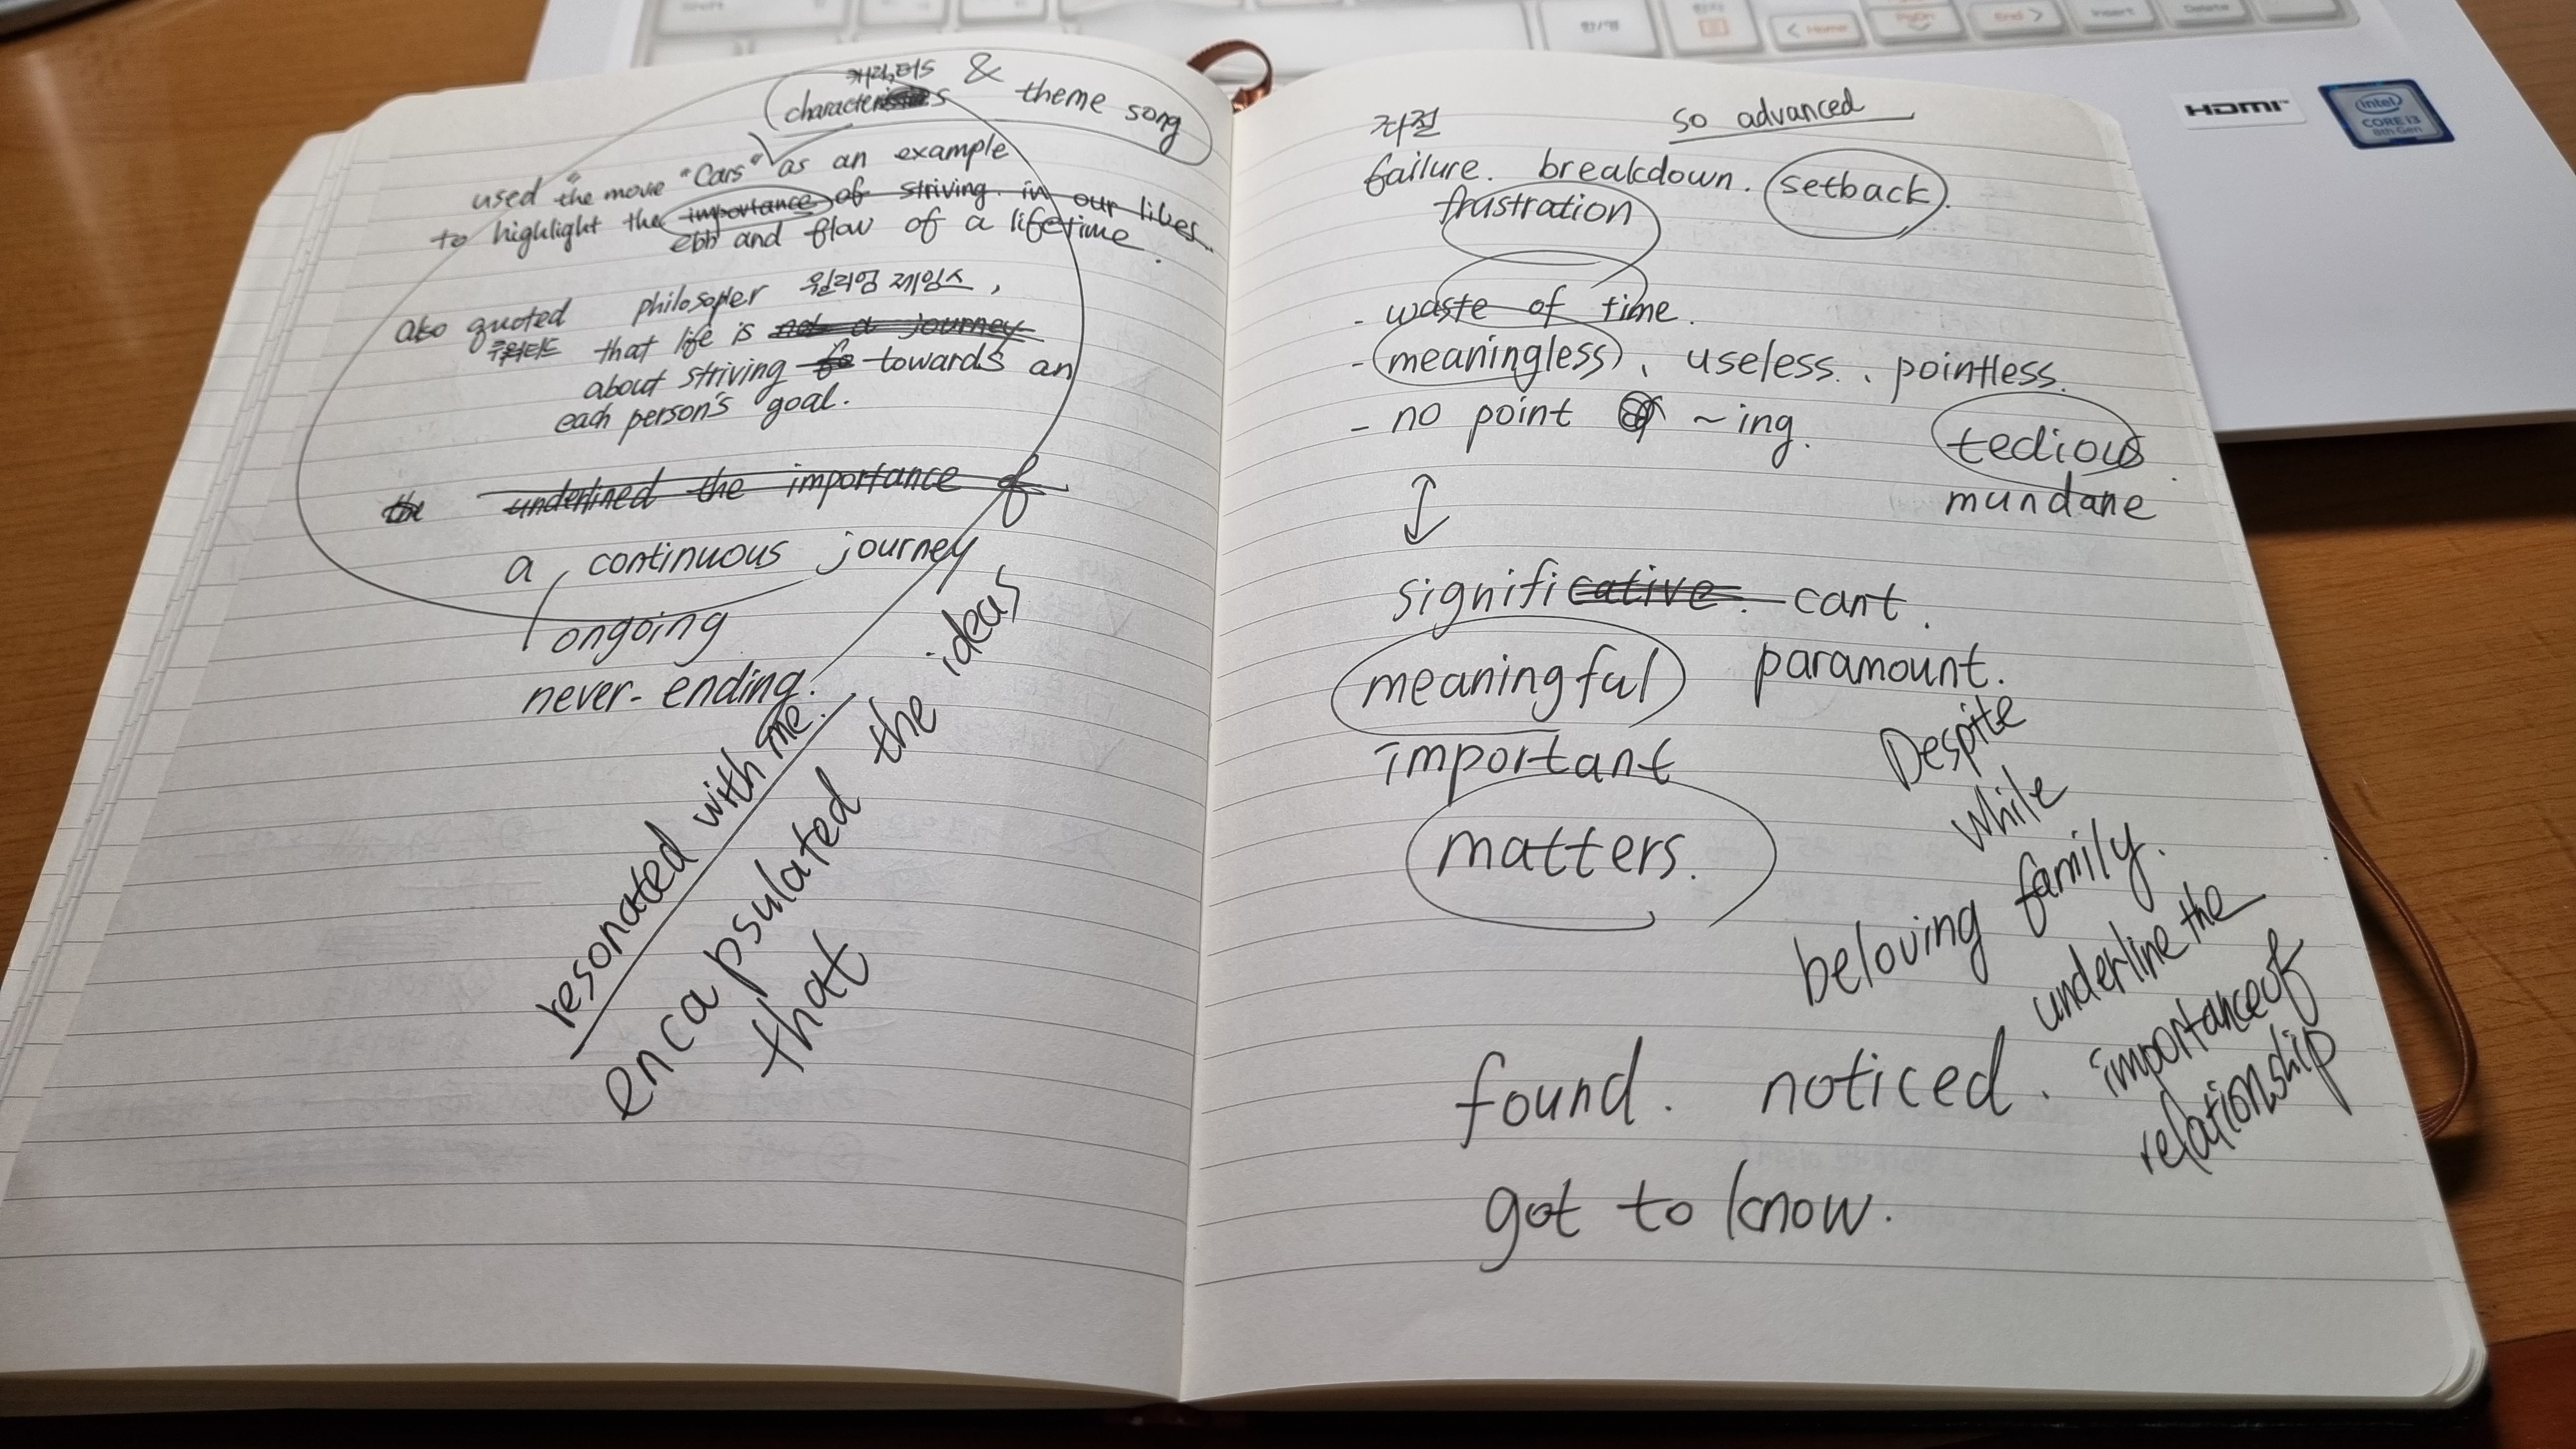 Shift
한/영
한자
< Home
PgDn
End >
Insert
Delete
HDMI
intel
CORE i3
8th Gen
캐릭터s &
characteristics theme song
used the movie "Cars" as an example
to highlight the importance of striving in our lives.
ebb and flow of a lifetime.
also quoted philosopler 윌리엄 제임스,
that life is not a journey
about striving fo towards an
each person's goal.
the underlined the importance of
a continuous journey
ongoing
never-ending.
resonated with me.
encapsulated the ideas
that
좌절
so advanced
failure. breakdown. setback.
frustration
- waste of time.
- meaningless, useless, pointless.
- no point of ~ing.
tedious
mundane
significative. cant.
meaningful paramount.
important
matters.
Despite
while
beloving family.
underline the
importance of
relationship
found. noticed.
got to know.